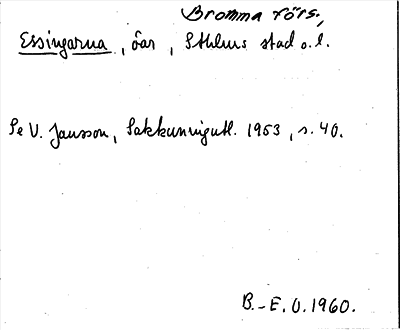 Bromma förs.,
Essingarna, öar, Sthlms stad o. l.
Se V. Jansson, Sakkunnigutl. 1953, s. 40.
B.-E. O. 1960.